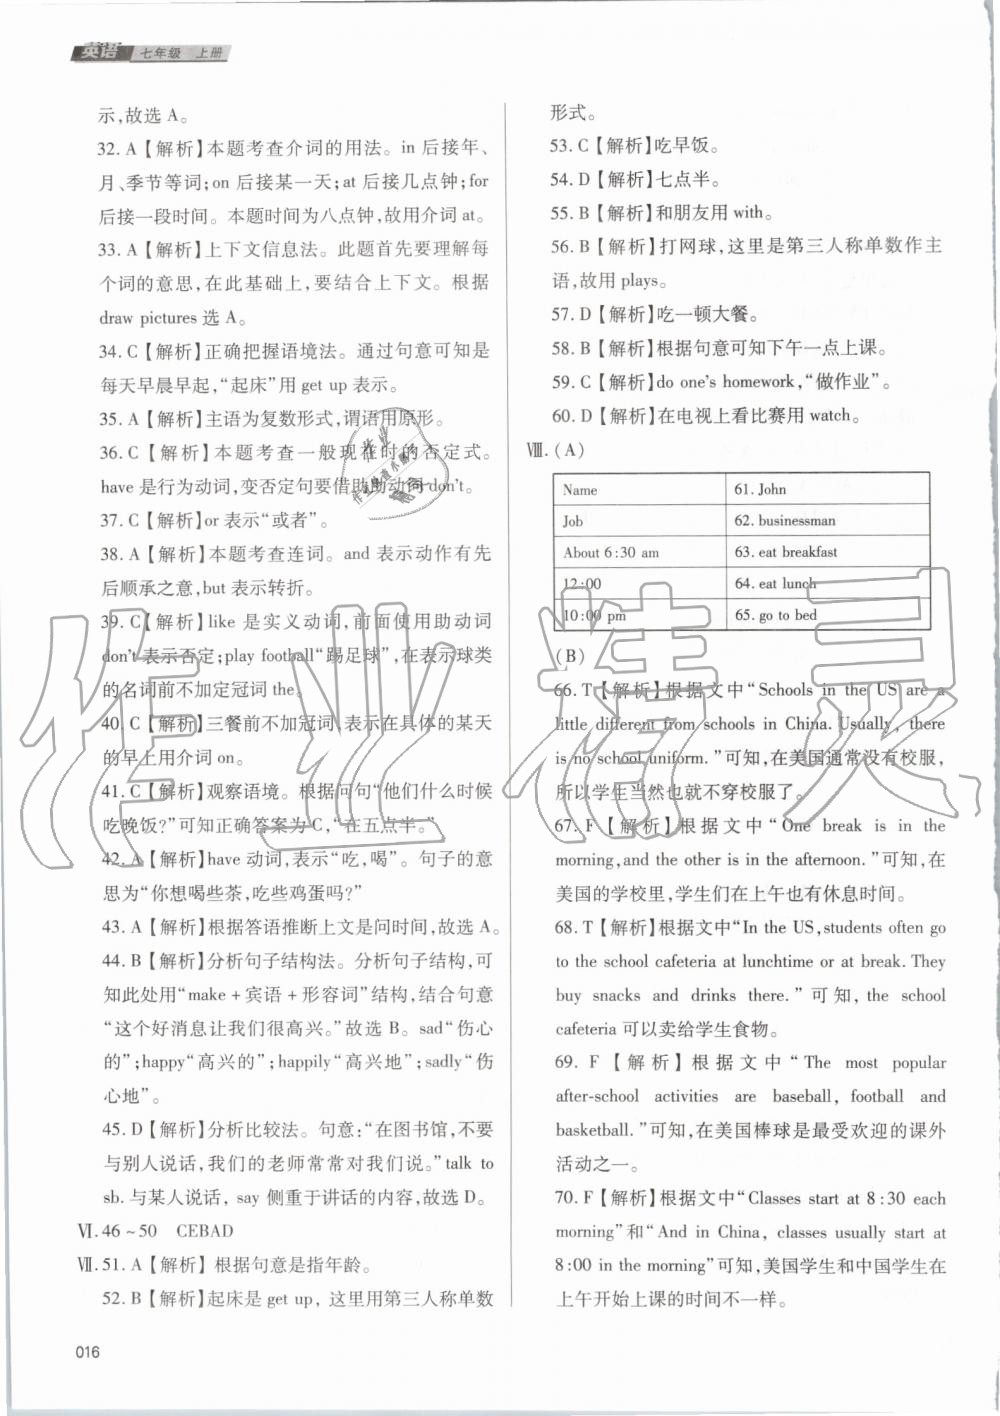 英语 七年级 上册
示,故选 A。
32. A【解析】本题考查介词的用法。in 后接年、
月、季节等词;on 后接某一天;at 后接几点钟;for
后接一段时间。本题时间为八点钟,故用介词 at。
33. A【解析】上下文信息法。此题首先要理解每
个词的意思,在此基础上,要结合上下文。根据
draw pictures 选 A。
34. C【解析】正确把握语境法。通过句意可知是
每天早晨早起,“起床”用 get up 表示。
35. A【解析】主语为复数形式,谓语用原形。
36. C【解析】本题考查一般现在时的否定式。
have 是行为动词,变否定句要借助助动词 don't。
37. C【解析】or 表示“或者”。
38. A【解析】本题考查连词。and 表示动作有先
后顺承之意,but 表示转折。
39. C【解析】like 是实义动词,前面使用助动词
don't 表示否定;play football“踢足球”,在表示球类
的名词前不加定冠词 the。
40. C【解析】三餐前不加冠词,表示在具体的某天
的早上用介词 on。
41. C【解析】观察语境。根据问句“他们什么时候
吃晚饭?”可知正确答案为 C,“在五点半。”
42. A【解析】have 动词,表示“吃,喝”。句子的意
思为“你想喝些茶,吃些鸡蛋吗?”
43. A【解析】根据答语推断上文是问时间,故选 A。
44. B【解析】分析句子结构法。分析句子结构,可
知此处用“make + 宾语 + 形容词”结构,结合句意
“这个好消息让我们很高兴。”故选 B。sad“伤心
的”;happy“高兴的”;happily“高兴地”;sadly“伤
心地”。
45. D【解析】分析比较法。句意:“在图书馆,不要
与别人说话,我们的老师常常对我们说。”talk to
sb. 与某人说话, say 侧重于讲话的内容,故选 D。
Ⅵ. 46 ~ 50 CEBAD
Ⅶ. 51. A【解析】根据句意是指年龄。
52. B【解析】起床是 get up, 这里用第三人称单数
形式。
53. C【解析】吃早饭。
54. D【解析】七点半。
55. B【解析】和朋友用 with。
56. B【解析】打网球,这里是第三人称单数作主
语,故用 plays。
57. D【解析】吃一顿大餐。
58. B【解析】根据句意可知下午一点上课。
59. C【解析】do one's homework,“做作业”。
60. D【解析】在电视上看比赛用 watch。
Ⅷ. (A)
Name 61. John
Job 62. businessman
About 6:30 am 63. eat breakfast
12:00 64. eat lunch
10:00 pm 65. go to bed
(B)
66. T【解析】根据文中“Schools in the US are a
little different from schools in China. Usually, there
is no school uniform. ”可知,在美国通常没有校服,
所以学生当然也就不穿校服了。
67. F【解析】根据文中“One break is in the
morning,and the other is in the afternoon. ”可知,在
美国的学校里,学生们在上午也有休息时间。
68. T【解析】根据文中“In the US,students often go
to the school cafeteria at lunchtime or at break. They
buy snacks and drinks there. ”可知, the school
cafeteria 可以卖给学生食物。
69. F【解析】根据文中“The most popular
after-school activities are baseball, football and
basketball. ”可知,在美国棒球是最受欢迎的课外
活动之一。
70. F【解析】根据文中“Classes start at 8:30 each
morning”和“And in China, classes usually start at
8:00 in the morning”可知,美国学生和中国学生在
上午开始上课的时间不一样。
016
作业精灵